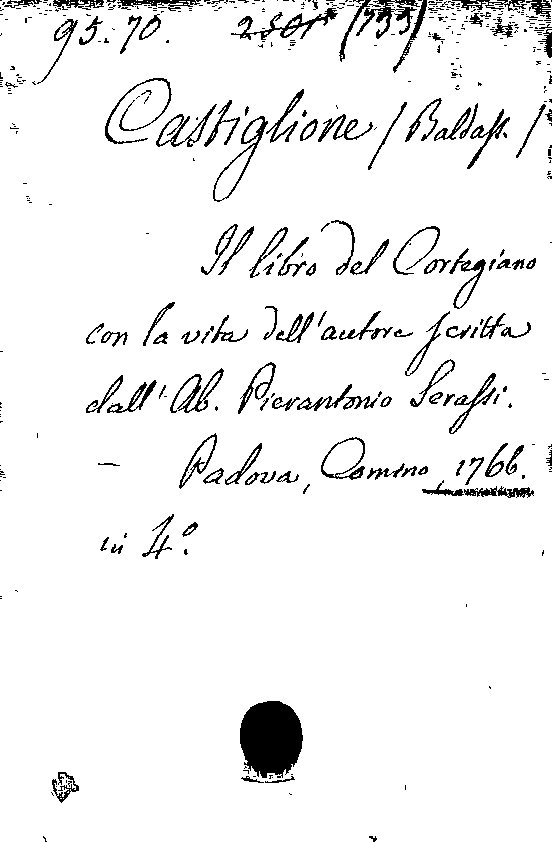 95.70. (733)
Castiglione / Baldass. /
Il libro del Cortegiano
con la vita dell'autore scritta
dall' Ab. Pierantonio Serassi.
— Padova, Comino, 1766.
in 4.º